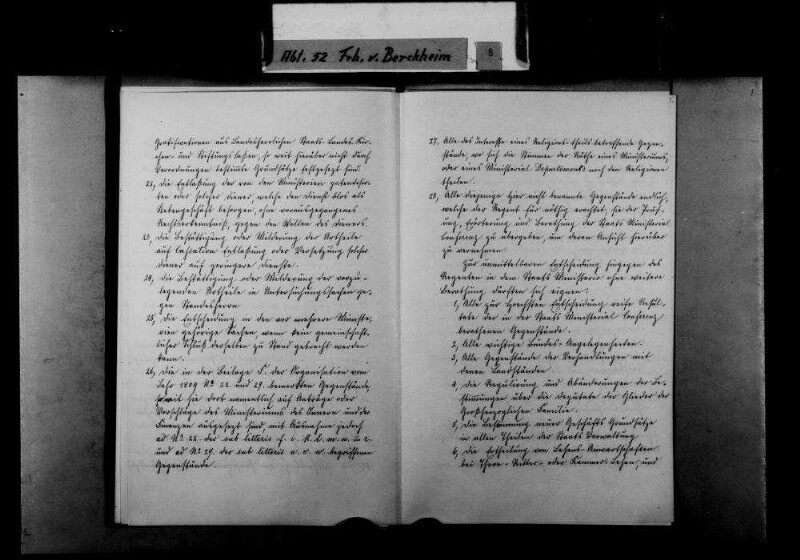 Abt. 52 Frh. v. Berckheim
8
Gratificationen aus Landesherrlichen Staats-Landes-Kir-
chen- und Stiftungs so weit hierüber nicht durch
Verordnungen bestimte Grundsätze festgesezt sind.
22, Die Entlassung der von den Ministerien patentisir-
ten oder solcher Diener, welche den Dienst blos als
Nebengeschäft besorgen, ohne vorausgegangenes
Rechtserkenntniß, gegen den Willen des Dieners.
23, Die Bestättigung, oder Milderung der Urtheile
auf Cassation Entlassung oder Versetzung solcher
Diener auf geringere Dienste.
24, Die Bestättigung oder Milderung der vorzu-
legenden Urtheile in Untersuchungssachen ge-
gen Standesherrn
25, Die Entscheidung in den vor mehrere Ministe-
rien gehörige Sachen, wenn kein gemeinschaft-
licher Schluß derselben zu Stand gebracht werden
kann.
26, Die in der Beilage F. der Organisation vom
Jahr 1809 No 28. und 29. bemerkten Gegenstände,
soweit sie dort namentlich auf Anträge oder
Vorschläge des Ministeriums des Innern und der
Finanzen ausgesezt sind, mit Ausnahme jedoch
ad No 28. der sub litteris
und ad No 29. der sub litteris begriffenen
Gegenstände.
27, Alle das Interesse eines Religions-theils betreffende Gegen-
stände, wo sich die Stimmen der Räthe eines Ministeriums,
oder eines Ministerial Departements nach den Religionen
theilen.
28, Alle diejenige hier nicht benannte Gegenstände endlich,
welche der Regent für nöthig erachtet, sie der Prüf-
ung, Erörterung und Berathung der Staats Ministerial
Conferenz zu übergeben, um deren Ansicht hierüber
zu vernehmen.
Zur unmittelbaren Entscheidung hingegen des
Regenten in dem Staats Ministerio ohne weitere
Berathung dürften sich eignen:
1, Alle zur Höchsten Entscheidung reife Resul-
tate der in der Staats Ministerial Conferenz
berathenen Gegenstände.
2, Alle wichtige Bundes-Angelegenheiten.
3, Alle Gegenstände der Verhandlungen mit
denen Landständen.
4, Die Regulirung und Abänderungen der Be-
stimmungen über die Deputate der Glieder der
Großherzoglichen Familie.
5, Die Bestimmung neuer Geschäfts Grundsätze
in allen Theilen der Staats Verwaltung
6, Die Ertheilung von Lehens-Anwartschaften
bei Thron-Ritter- oder Kammer-Lehen, und